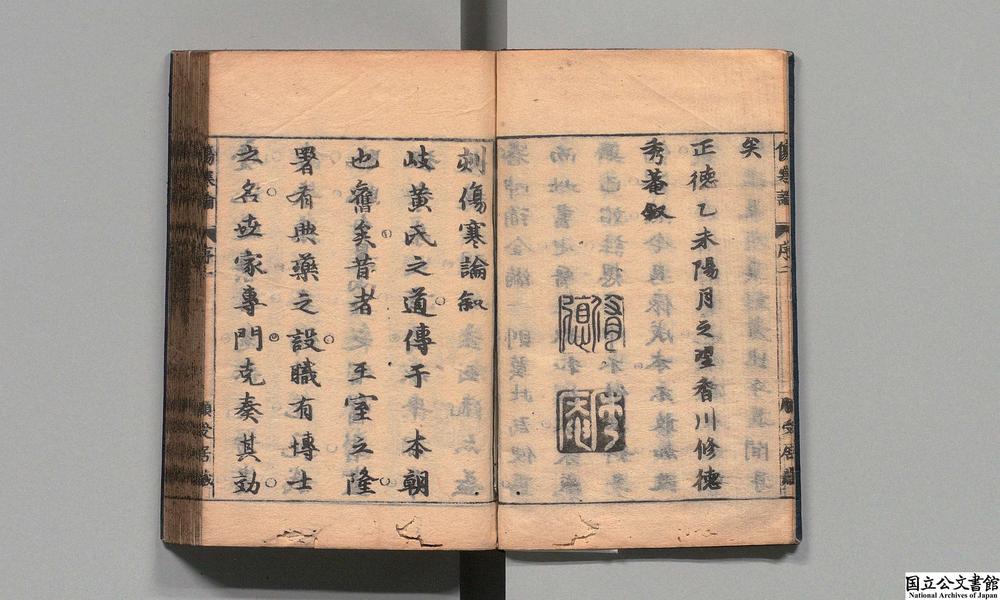 矣
正德乙未陽月之望香川修德
秀菴叙
刻傷寒論叙
岐黄氏之道傳于本朝
也舊矣昔者王室之隆
署有典藥之設職有博士
之名世家專門克奏其効
傷寒論
序二
国立公文書館
National Archives of Japan